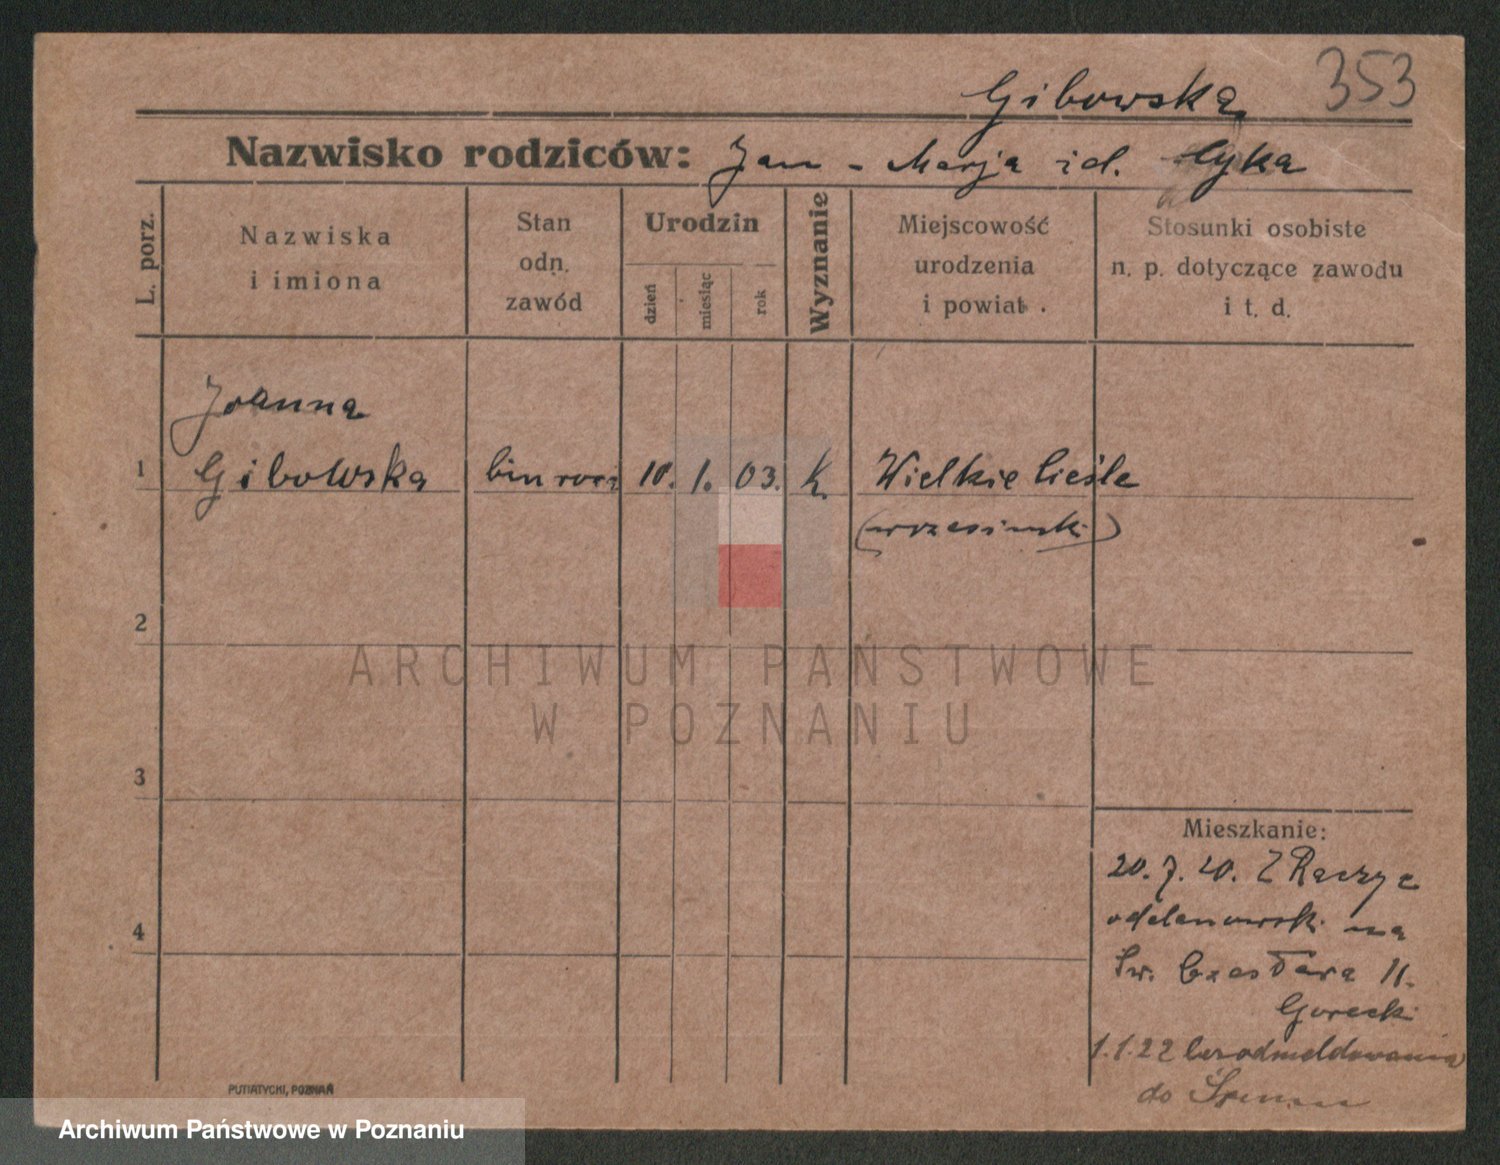 353
Gibowska
Nazwisko rodziców: Jan - Marja zd. Cyka
L. porz.
Nazwiska
i imiona
Stan
odn.
zawód
Urodzin
dzień
miesiąc
rok
Wyznanie
Miejscowość
urodzenia
i powiat
Stosunki osobiste
n. p. dotyczące zawodu
i t. d.
Joanna
1 Gibowska 10. 1. 03. k. Wielkie
2
ARCHIWUM PAŃSTWOWE
W POZNANIU
3
Mieszkanie:
20. 7. 20. Z Raczyc
odelanowski na
Św. Czesława 11.
4
Gorecki
1.1.22 bez odmeldowania
do Śremu
PUTIATYCKI, POZNAŃ
Archiwum Państwowe w Poznaniu